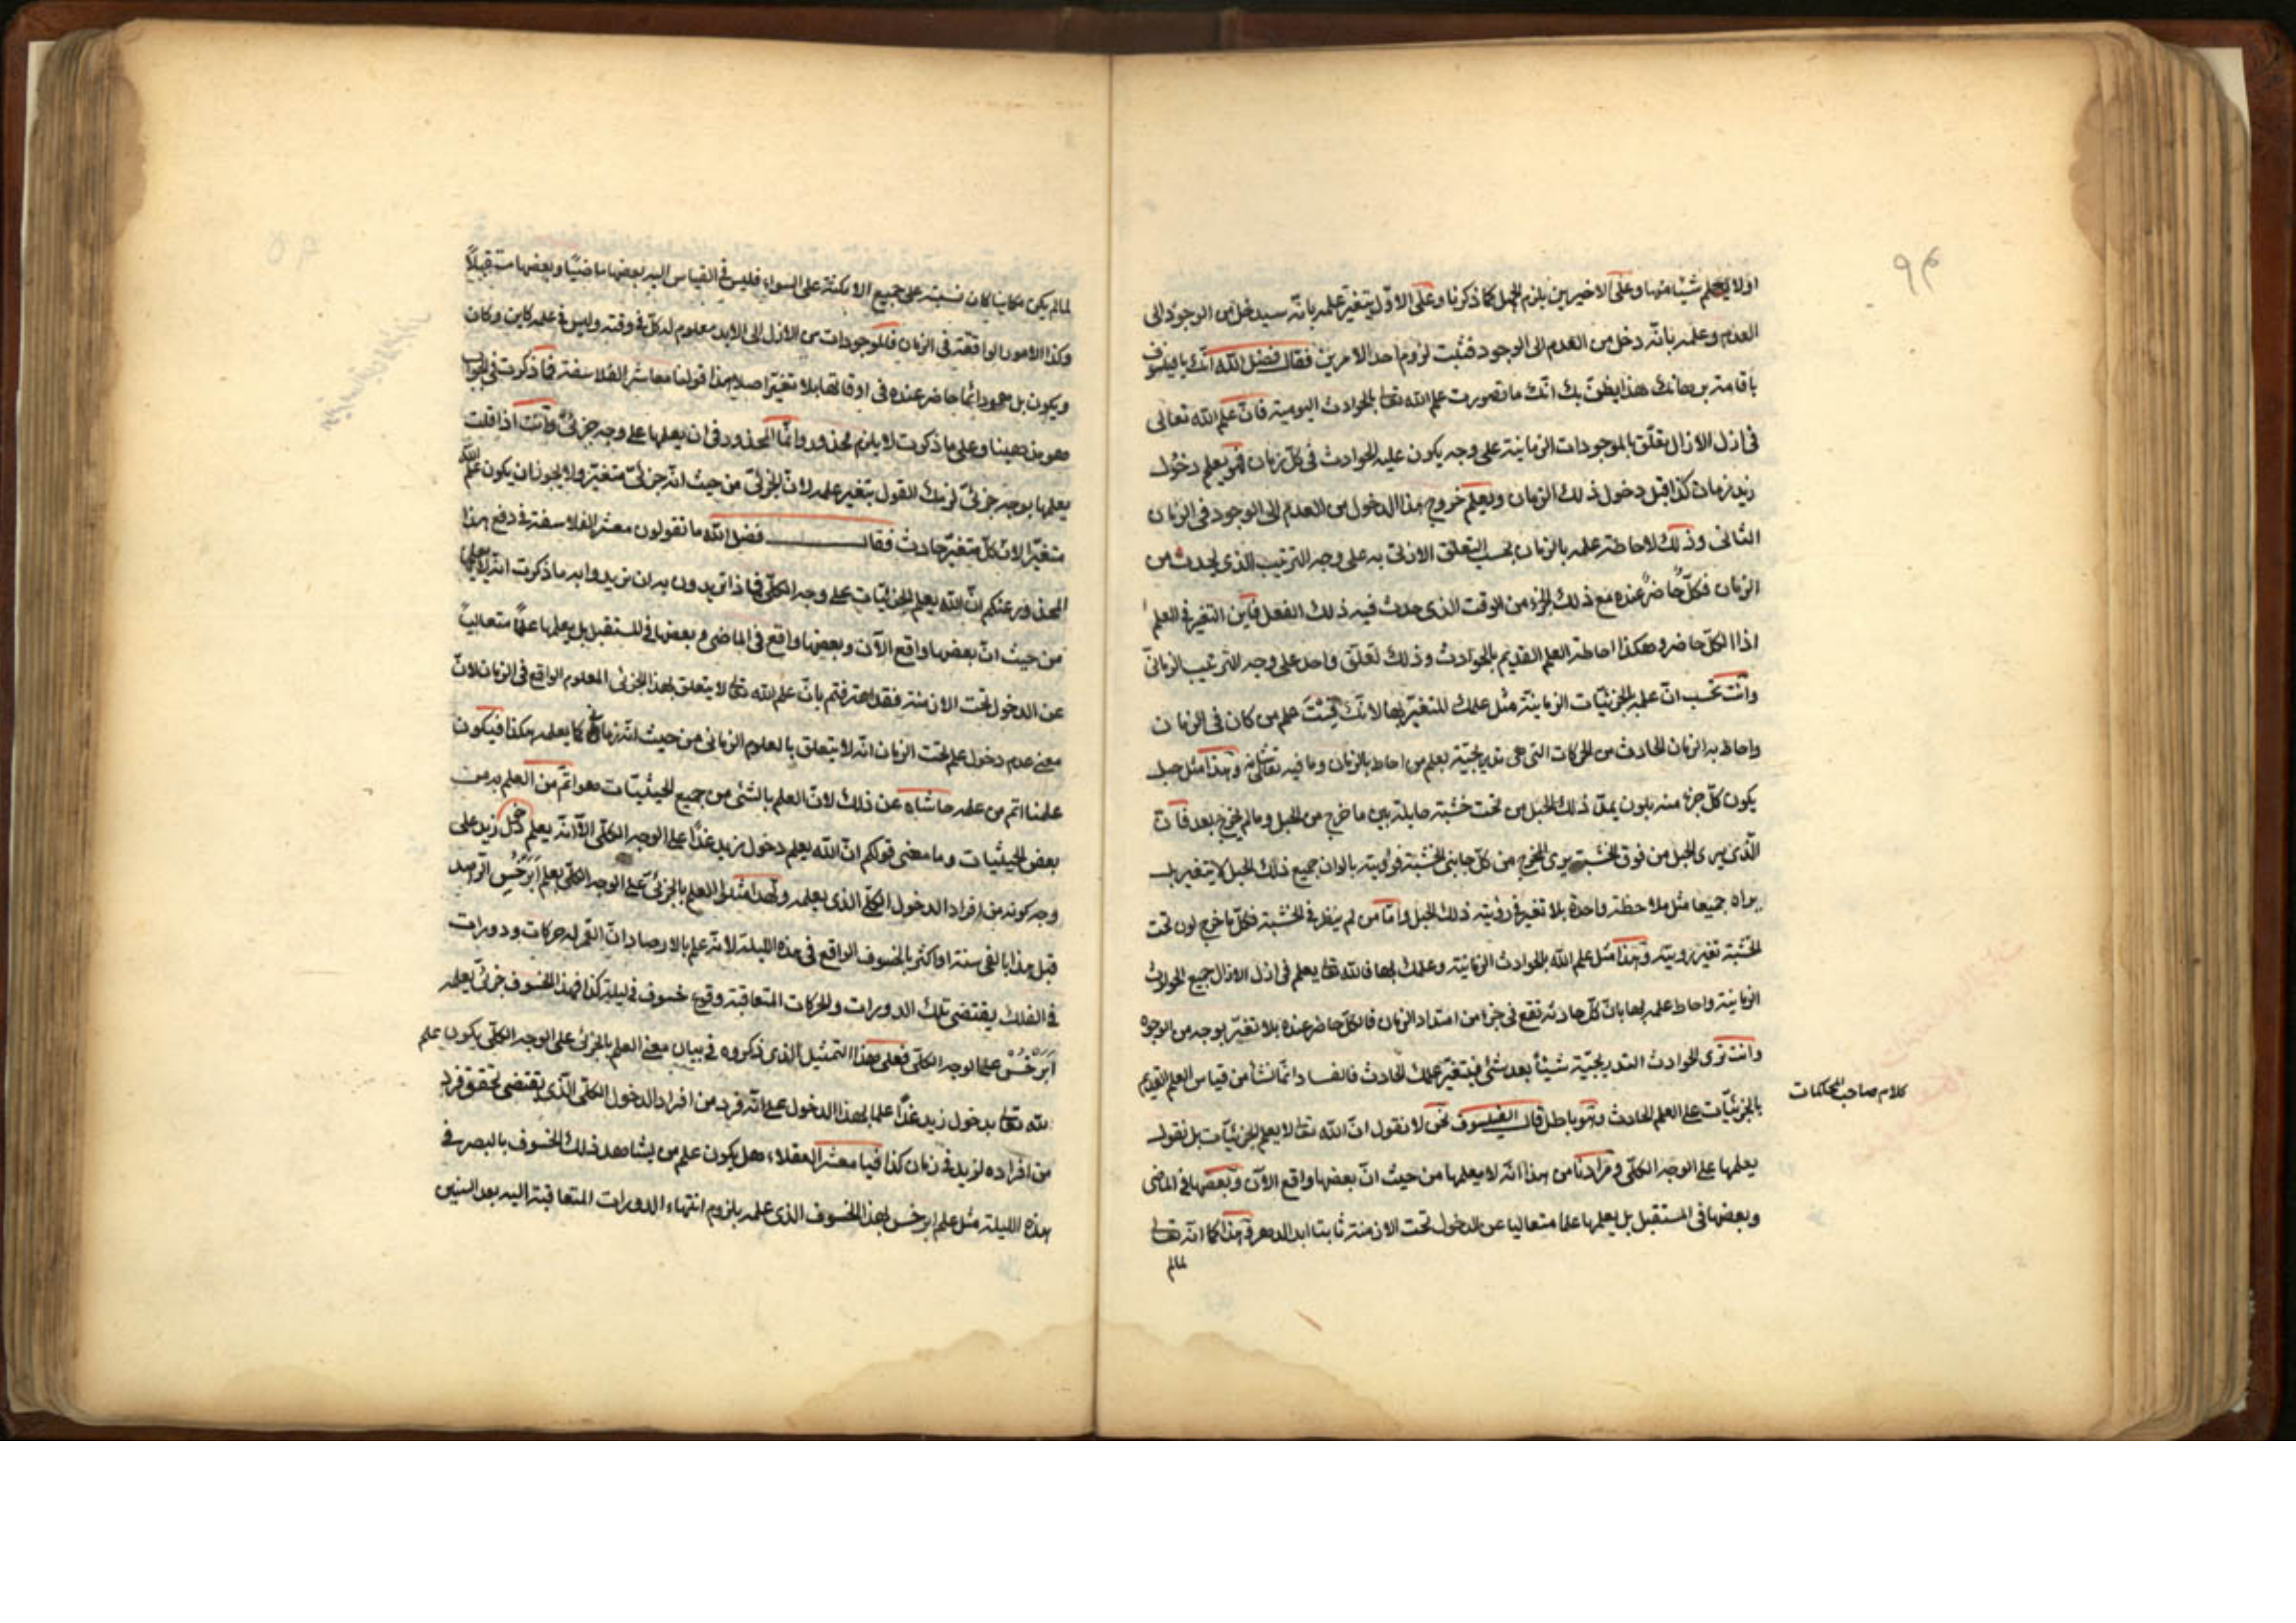 ٩٤
او لا يعلم شيئا منها وعلى الاخيرين يلزم الجهل كما ذكرنا وعلى الاول يتغير علمه بانه سيدخل من الوجود الى
العدم وعلمه بانه دخل من العدم الى الوجود فثبت لزوم احد الامرين فقال فضل الله انك يا فيلسوف
باقامة برهانك هذا يظن بك انك ما تصورت علم الله تعا بالحوادث اليومية فان علم الله تعالى
فى ازل الازال يتعلق بالموجودات الزمانية على وجه يكون عليه الحوادث فى كل زمان فهو يعلم دخول
زيد زمان كذا قبل دخول ذلك الزمان ويعلم خروج هذا الدخول من العدم الى الوجود فى الزمان
الثانى وذلك لاحاطة علمه بالزمان بحسب التعلق الازلى به على وجه الترتيب الذى يحدث من
الزمان فكل حاضر عنده مع ذلك الجزء من الوقت الذى حدث فيه ذلك الفعل فاين التغير فى العلم
اذا الكل حاضر وهكذا احاطة العلم القديم بالحوادث وذلك تعلق واحد على وجه الترتيب الزمانى
وانت تحسب ان علمه بالجزئيات الزمانية مثل علمك المتغير بها لانك قست علم من كان فى الزمان
واحاط به الزمان الحادث من الحركات التى هى تدريجية بعلم من احاط بالزمان وما فيه تعالى شانه وهذا مثل حبل
يكون كل جزء منه بلون يمد ذلك الحبل من تحت خشبة حايلة بين ما خرج من الحبل وما لم يخرج بعد فان
الذى يرى الحبل من فوق الخشبة يرى المخرج من كل جانبى الخشبة فرؤيته بالوان جميع ذلك الحبل لا يتغير بل
يراه جميعا مثل ملاحظة واحدة بلا تغير فى رؤيته ذلك الحبل واما من لم ينظر فى الخشبة فكل ما خرج لون تحت
الخشبة تغير رويته وهذا مثل علم الله بالحوادث الزمانية وعلمك بها فالله تعا يعلم فى ازل الازال جميع الحوادث
الزمانية واحاط علمه بها بان كل حادثة تقع فى جزء من امتداد الزمان فالكل حاضر عنده بلا تغير بوجه من الوجوه
وانت ترى الحوادث التدريجية شيئا بعد شئ فيتغير علمك الحادث فالفساد انما نشأ من قياس العلم القديم
بالجزئيات على العلم الحادث وهو باطل قال الفيلسوف نحن لا نقول ان الله تعا لا يعلم الجزئيات بل نقول
كلام صاحب المحاكمات
يعلمها على الوجه الكلى ومرادنا من هذا انه لا يعلمها من حيث ان بعضها واقع الآن وبعضها فى الماضى
وبعضها فى المستقبل بل يعلمها علما متعاليا عن الدخول تحت الازمنة ثابتا ابد الدهر وهذا كما انه تعا
لما لم
لما لم يكن مكانيا كان نسبته على جميع الامكنة على السواء فليس فى القياس اليه بعضها ماضيا وبعضها مستقبلا
وكذا الامور الواقعة فى الزمان فالموجودات من الازل الى الابد معلوم له كل فى وقته وليس فى علمه كاين وكان
ويكون بل هو دائما حاضر عنده فى اوقاتها بلا تغير اصلا هذا قولنا معاشر الفلاسفة فما ذكرت فى الجواب
هو مذهبنا وعلى ما ذكرت لا يلزم محذور وانما المحذور فى ان يعلمها على وجه جزئى وانت اذا قلت
يعلمها بوجه جزئى لزمك القول بتغير علمه لان الجزئى من حيث انه جزئى متغير ولا يجوز ان يكون علم الله
متغيرا لان كل متغير حادث فقال فضل الله ما تقولون معشر الفلاسفة فى دفع هذا
المحذور عنكم ان الله يعلم الجزئيات على وجه الكلى فماذا تريدون به ان تريدوا به ما ذكرت انه لا يعلمها
من حيث ان بعضها واقع الآن وبعضها واقع فى الماضى وبعضها فى المستقبل بل يعلمها علما متعاليا
عن الدخول تحت الازمنة فقد اعترفتم بان علم الله تعا لا يتعلق بهذا الجزئى المعلوم الواقع فى الزمان لان
معنى عدم دخول علمه تحت الزمان انه لا يتعلق بالمعلوم الزمانى من حيث انه زمانى كما يعلمه هكذا فيكون
علمنا اتم من علمه حاشاه عن ذلك لان العلم بالشئ من جميع الحيثيات هو اتم من العلم به من
بعض الحيثيات وما معنى قولكم ان الله يعلم دخول زيد غدا على الوجه الكلى الا انه يعلم دخل زيد على
وجه كونه من افراد الدخول الكلى الذى يعلمه ولهذا مثلوا العلم بالجزئى على الوجه الكلى بعلم ابرخس الراصد
قبل هذا بالفى سنة او اكثر بالخسوف الواقع فى هذه الليلة لانه علم بالارصاد ان القمر له حركات ودورات
فى الفلك يقتضى تلك الدورات والحركات المتعاقبة وقوع خسوف فى ليلة كذا فهذا الخسوف جزئى يعلمه
ابرخس على الوجه الكلى فعلى هذا التمثيل الذى ذكروه فى بيان معنى العلم بالجزئى على الوجه الكلى يكون علم
الله تعا بدخول زيد غدا علما بهذا الدخول على انه فرد من افراد الدخول الكلى الذى يقتضى تحقق فرد
من افراده لزيد فى زمان كذا فيا معشر العقلاء هل يكون علم من يشاهد ذلك الخسوف بالبصر فى
هذه الليلة مثل علم ابرخس بهذا الخسوف الذى علمه بلزوم انتهاء الدورات المتعاقبة اليه بعد السنين